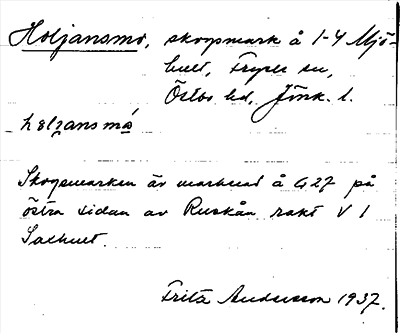 Holjansmo, skogsmark å 1-4 Mjö-
hult, Fryele sn,
Östbo hd, Jönk. l.
Skogsmarken är markerad å G27 på
östra sidan av Ruskån rakt V I
Salhult.
Frita Andersson 1937.